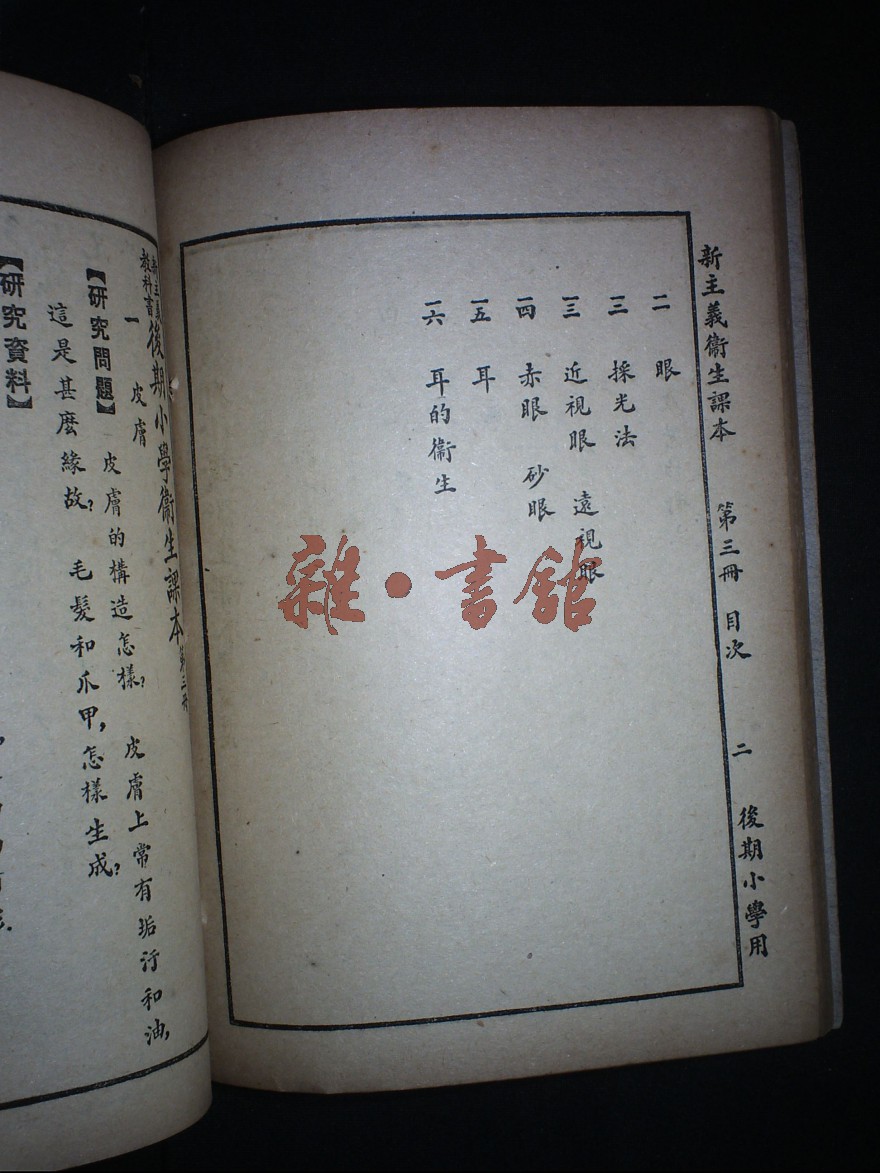 新主義衞生課本 第三冊 目次 二 後期小學用
一一 眼
一二 採光法
一三 近視眼 遠視眼
一四 赤眼 砂眼
一五 耳
一六 耳的衞生
雜·書館
新主義教科書 後期小學衞生課本 第三冊
一 皮膚
【研究問題】 皮膚的構造怎樣? 皮膚上常有垢汙和油,
這是甚麼緣故? 毛髮和爪甲,怎樣生成?
【研究資料】